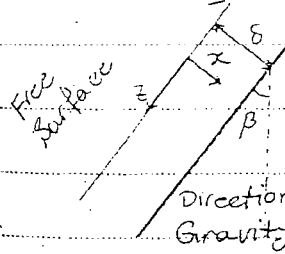 δ
x
Free
Surface
z
β
Direction
Gravity